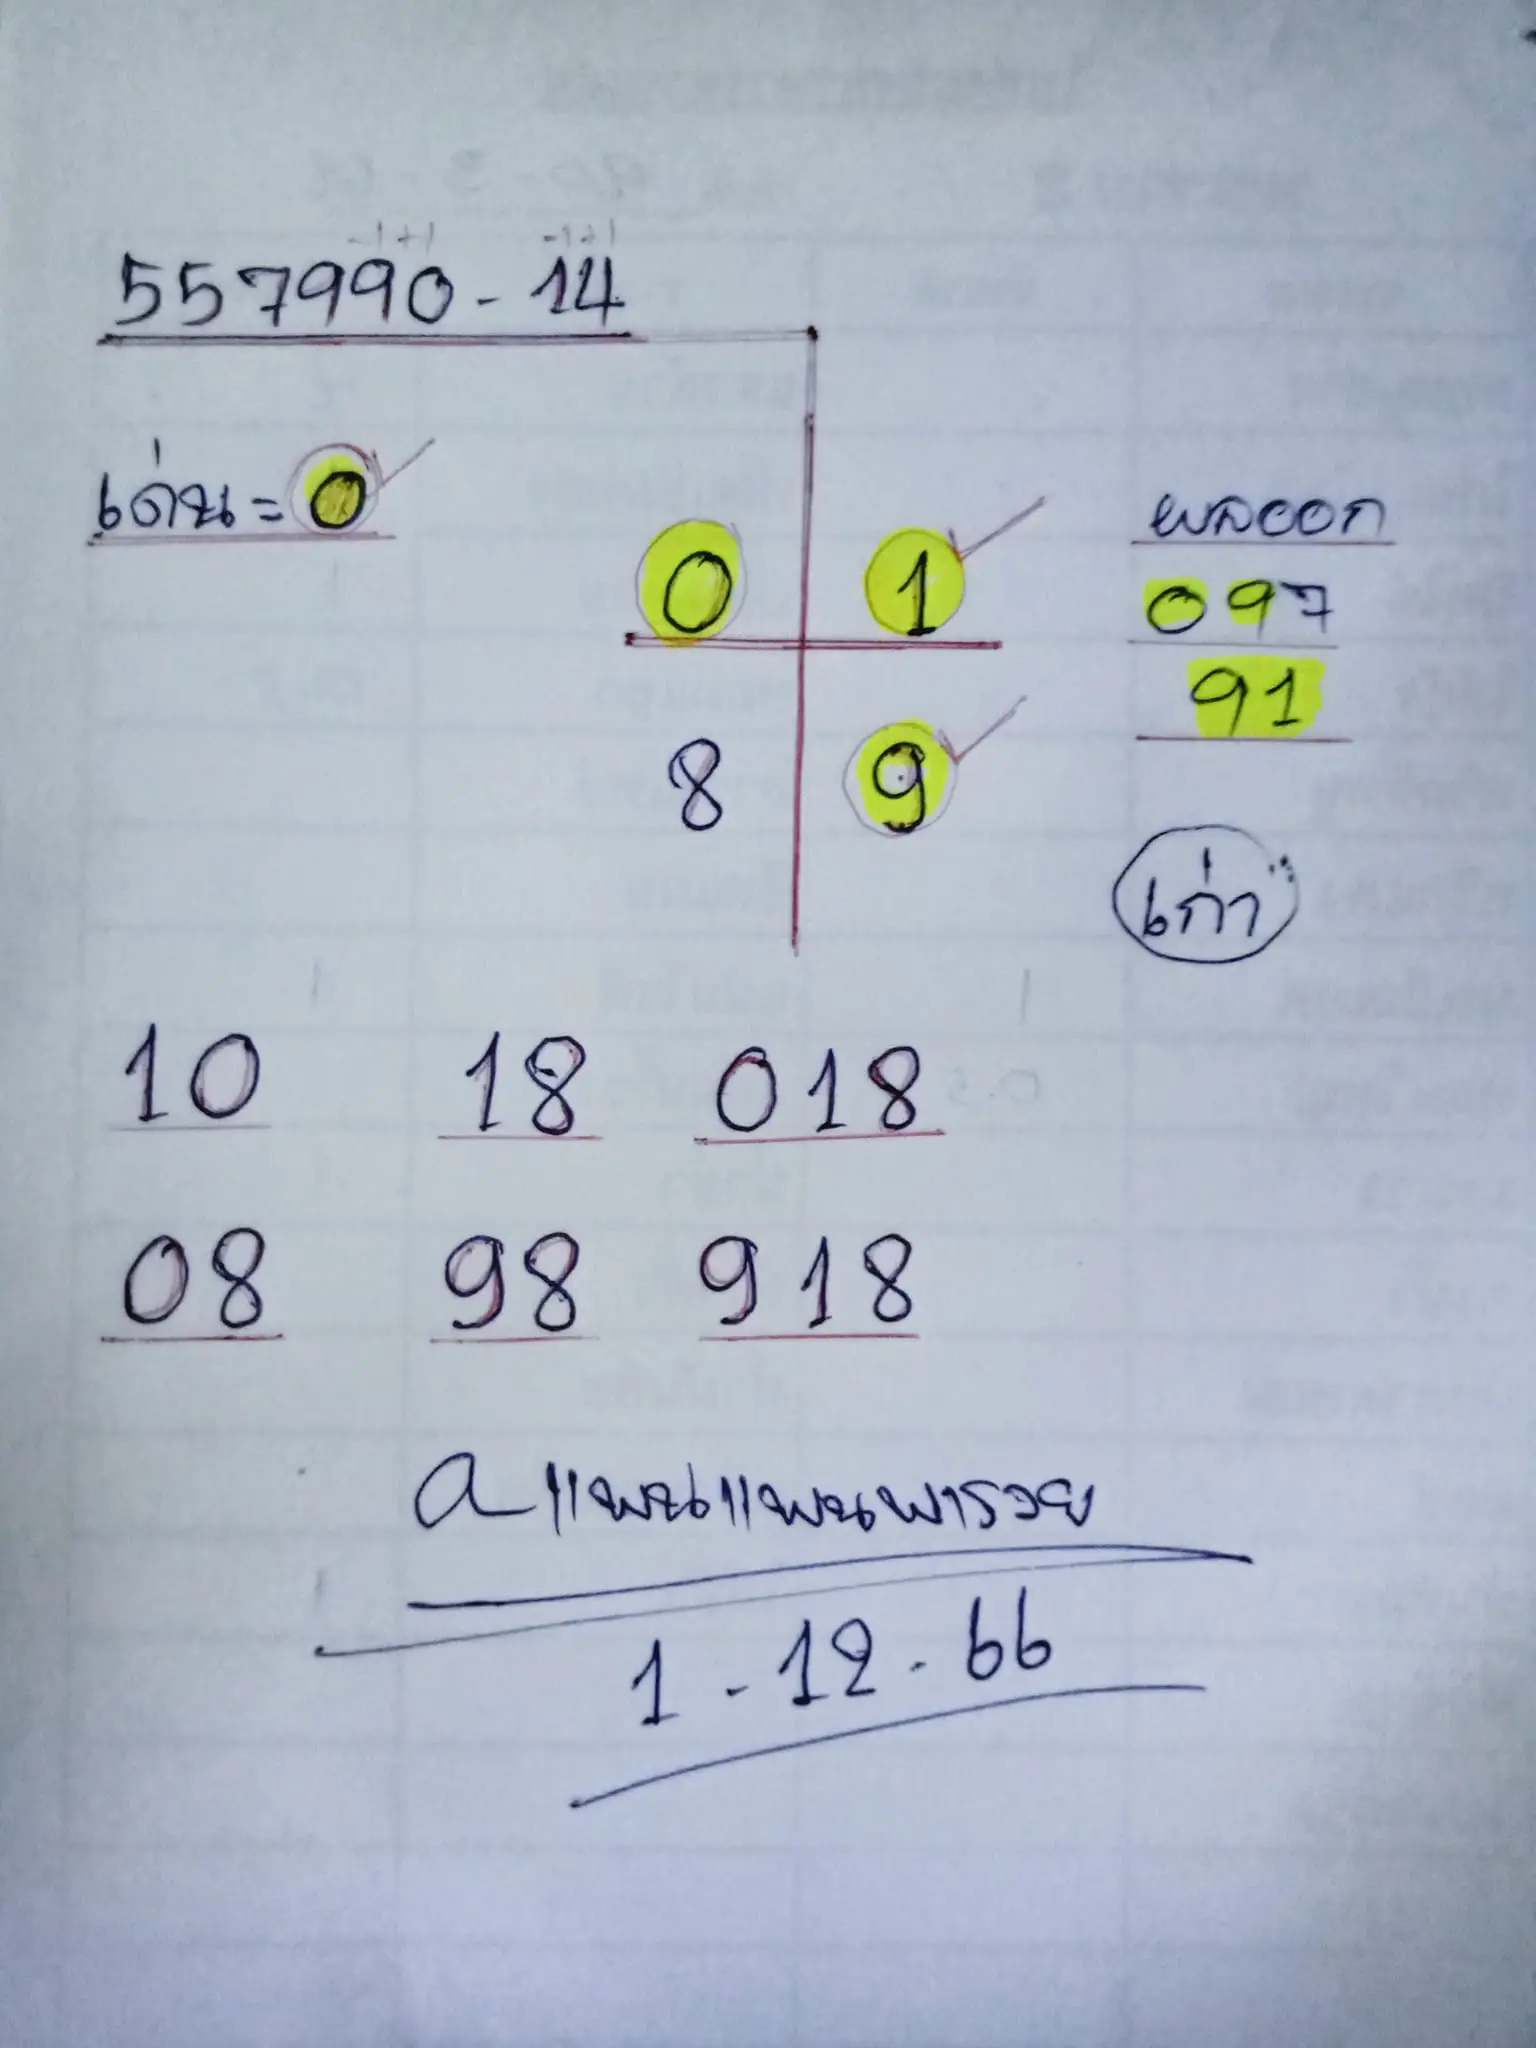 -1+1 -1+1
557990 - 14
เด่น = 0
0 1
8 9
ผลออก
097
91
เก่า
10 18 018
08 98 918
a แพนแพนพารวย
1 - 12 - 66